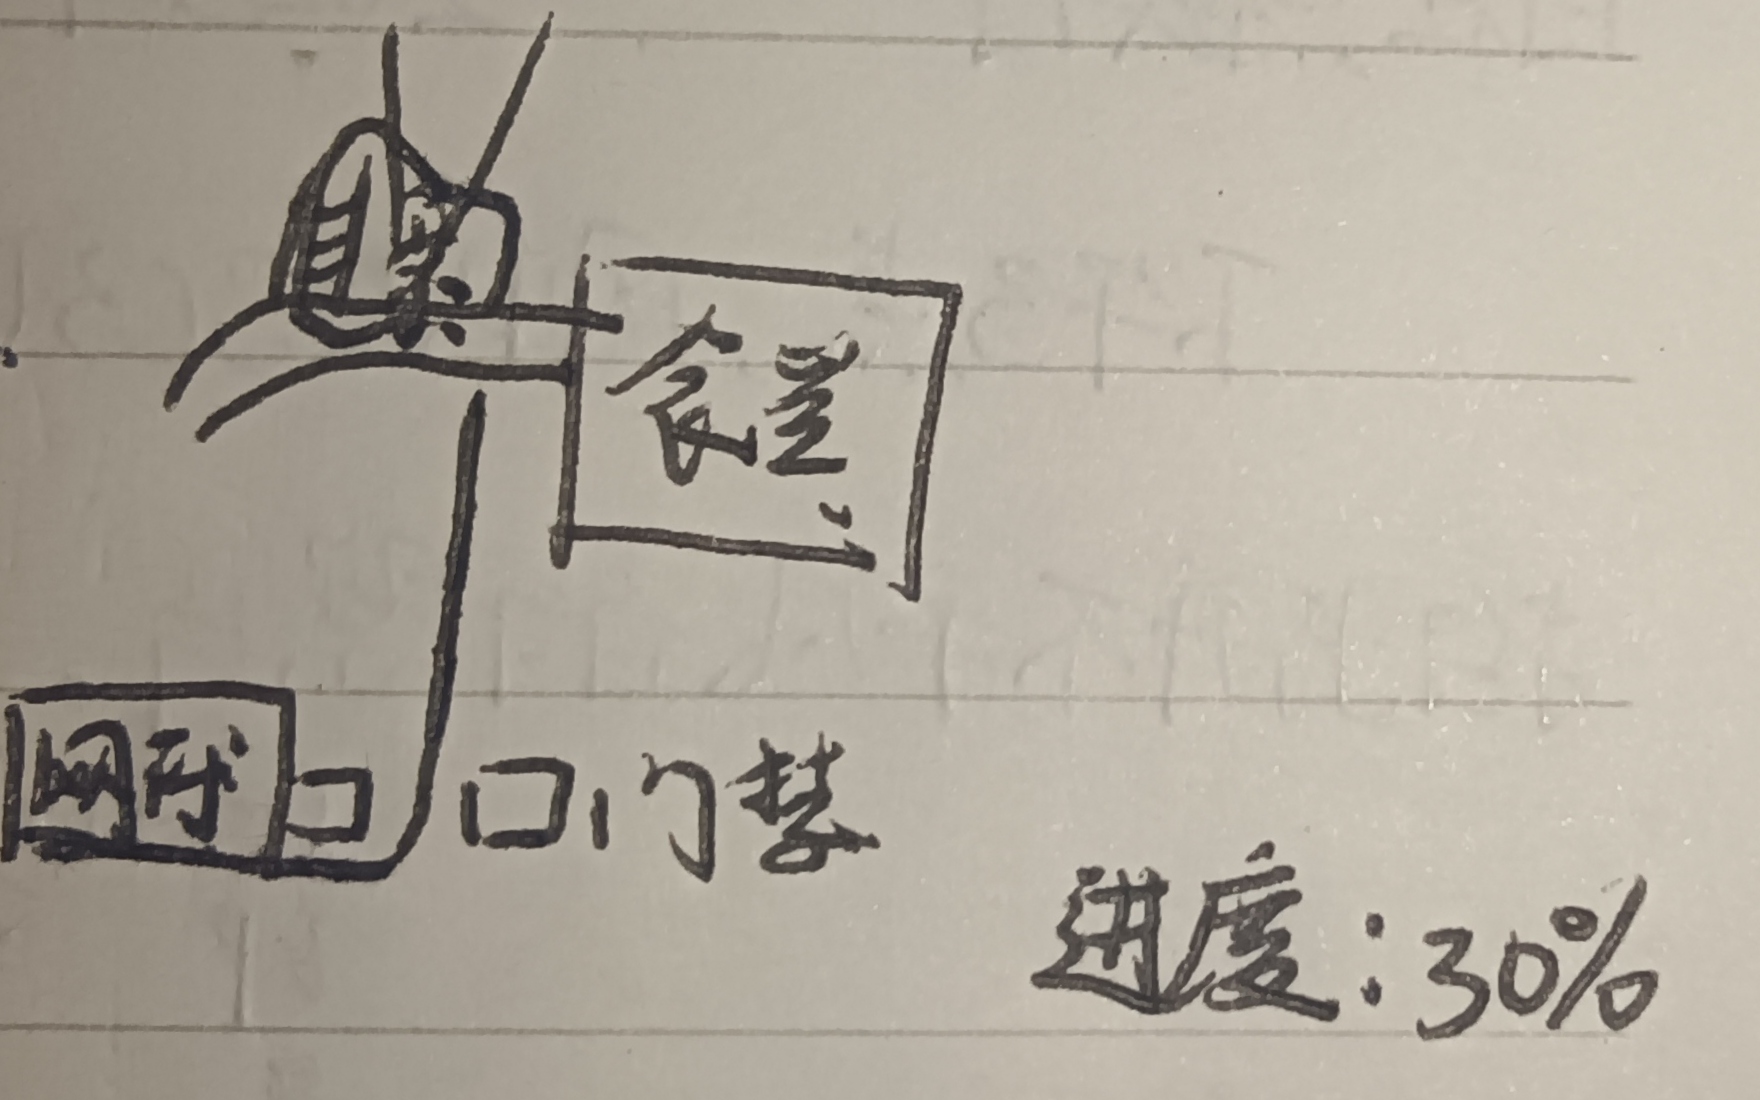 食堂
网球
门禁
进度:30%